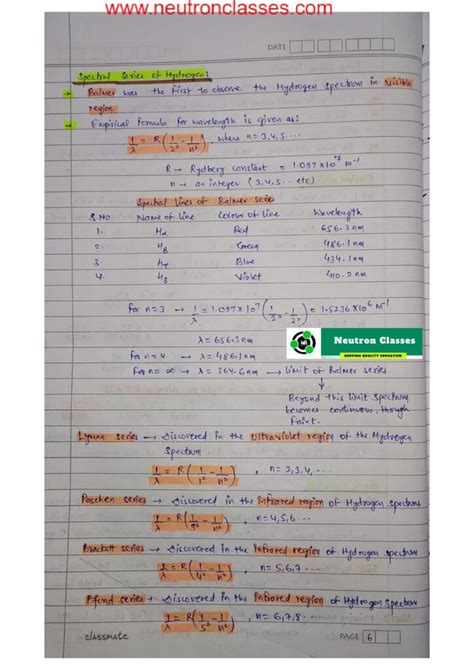 www.neutronclasses.com
DATE
Spectral Series of Hydrogen:
→ Balmer was the first to observe the Hydrogen spectrum in visible
region
→ Empirical Formula for wavelength is given as:
1/λ = R(1/2² - 1/n²), where n = 3,4,5...
R → Rydberg constant = 1.097 x 10⁷ m⁻¹
n → an integer (3,4,5... etc)
Spectral lines of Balmer series
S.NO. Name of Line Colour of Line Wavelength
1. Hα Red 656.3 nm
2. Hβ Green 486.1 nm
3. Hγ Blue 434.1 nm
4. Hδ Violet 410.2 nm
for n=3 → 1/λ = 1.097 x 10⁷ (1/2² - 1/3²) = 1.5236 x 10⁶ m⁻¹
λ = 656.3 nm
for n=4 → λ = 486.1 nm
for n=∞ → λ = 364.6 nm → Limit of Balmer series
Neutron Classes
SERVING QUALITY EDUCATION
↓
Beyond this limit spectrum
becomes continuous, through
faint.
Lyman series → Discovered in the Ultraviolet region of the Hydrogen
Spectrum
1/λ = R(1/1² - 1/n²), n = 2,3,4,...
Paschen series → Discovered in the infrared region of Hydrogen spectrum
1/λ = R(1/3² - 1/n²), n = 4,5,6...
Brackett series → Discovered in the Infrared region of Hydrogen spectrum
1/λ = R(1/4² - 1/n²), n = 5,6,7...
Pfond series → Discovered in the Infrared region of Hydrogen Spectrum
1/λ = R(1/5² - 1/n²), n = 6,7,8.
classmate
PAGE 6